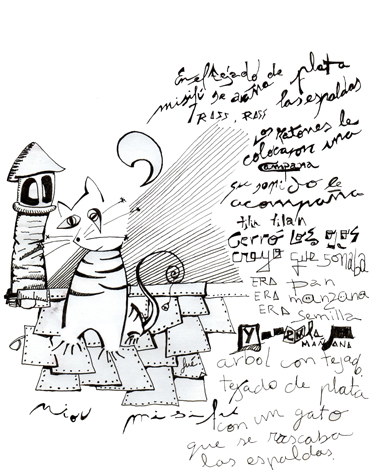 En el tejado de plata
misifú se araña las espaldas
RASS, RASS
los ratones le
colocaron una
campana
su sonido le
acompaña
tilín tilan
Cerró los ojos
creyó que soñaba
ERA pan
ERA manzana
ERA semilla
Y en la
MAÑANA
arbol con tejado
tejado de plata
con un gato
que se rascaba
las espaldas.
miou misifú